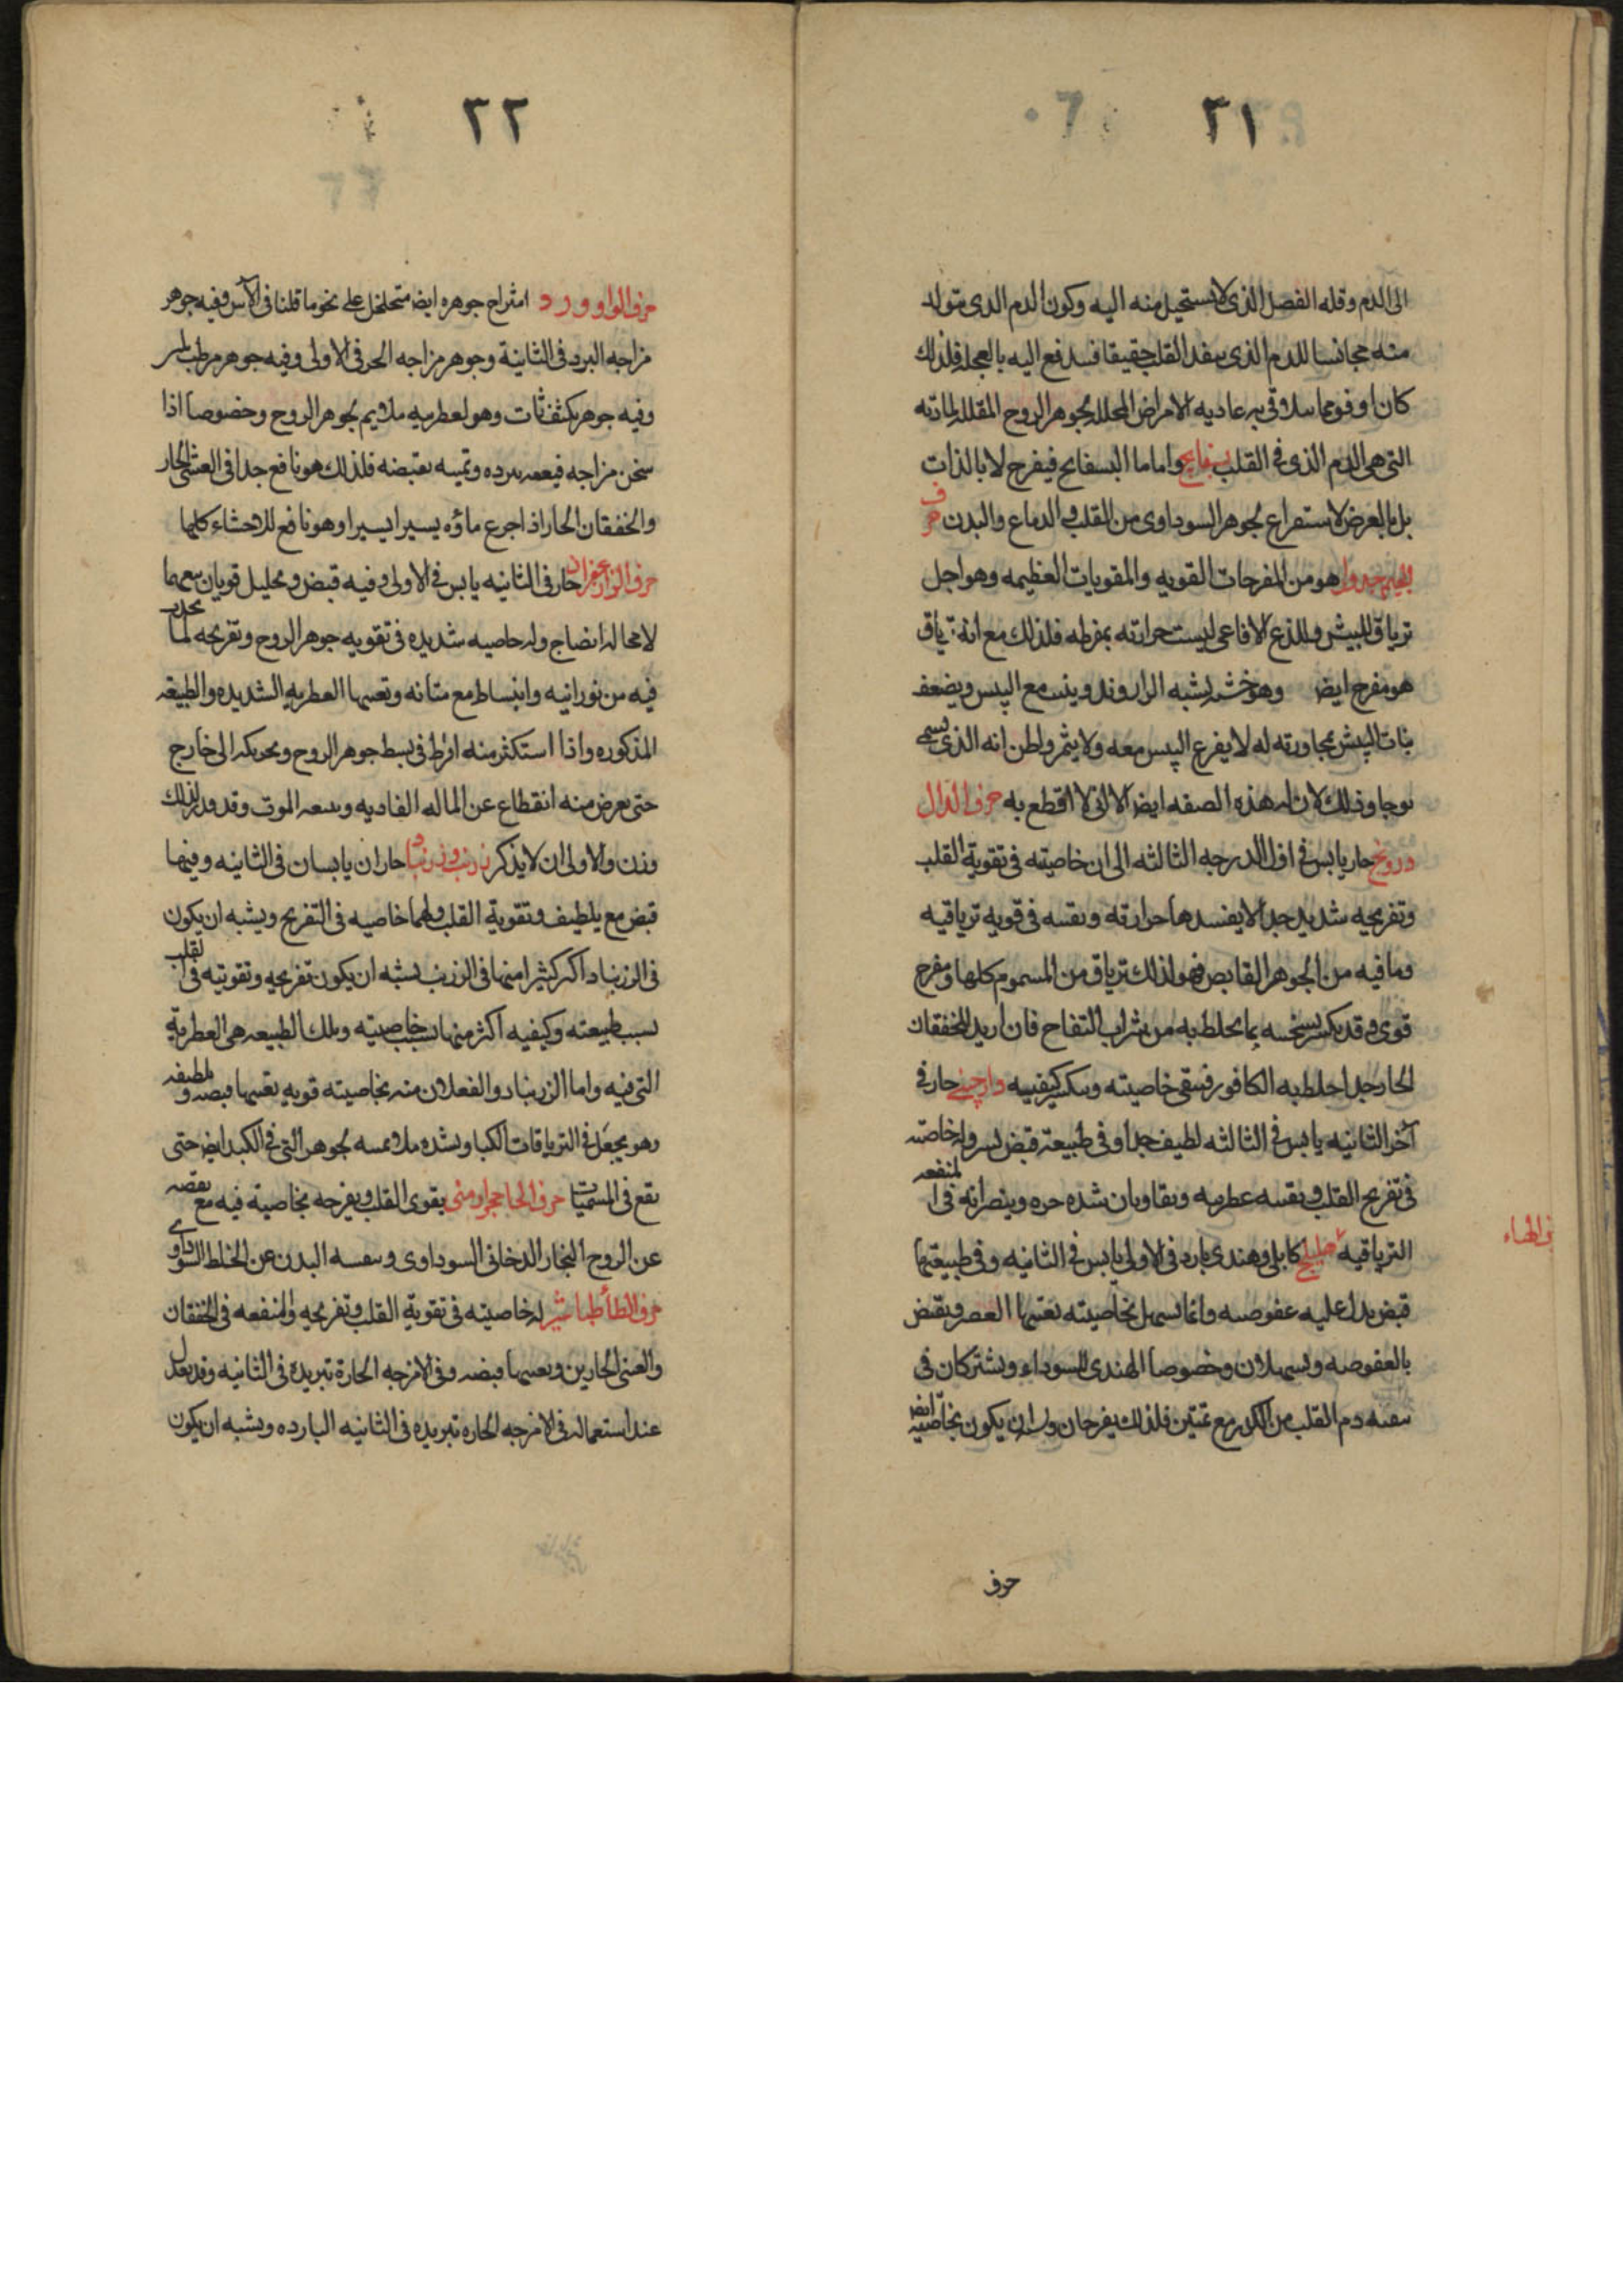 ٢١
الى الدم وقله الفصل الذى لا يستحيل منه اليه وكون الدم الدى متولد
منه مجانسا للدم الذى القلب حقيقا فيندفع اليه بالعجله فلذلك
كان اوفق مما به عاديه الامراض المحلله لجوهر الروح المقلله لمادته
التى هى الدم الذى فى القلب بسفايج واما البسفايج فيفرح لا بالذات
بل بالعرض لاستفراغ لجوهر السوداوى من القلب و الدماغ والبدن حرف
الجيم جدوار هو من المفرحات القويه والمقويات العظيمه وهو اجل
ترياق للبيش وللذع الافاعى ليست حرارته بمفرطه فلذلك مع انه ترياق
هو مفرح ايض وهو خشبه يشبه الزراوند وينبت مع البيس ويضعف
نبات البيش بمجاورته له لا يفرع البيس معه ولا يثمر واظن انه الذى يسمى
بوجا وذلك لان له هذه الصفه ايض الا انى لا اقطع به حرف الدال
درونج حار يابس فى اول الدرجه الثالثه الى ان خاصيته فى تقوية القلب
وتفريحه شديد جدا لا يفسدها حرارته فى قويه ترياقيه
وما فيه من الجوهر القابض فهو لذلك ترياق من السموم كلها ومفرح
قوى وقد يكسر تسخينه بما يخلط به من شراب التفاح فان اريد للخفقان
الحار جدا خلط به الكافور فتبقى خاصيته كيفيته دارچينى حار فى
آخر الثانيه يابس فى الثالثه لطيف جدا وفى طبيعته قبض يسير وله خاصيته
فى تفريح القلب عطريه شدة حره وينصرانه فى المنفعه
الترياقيه هليلج كابلى وهندى بارد فى الاولى يابس فى الثانيه وفى طبيعتهما
قبض يدل عليه عفوصته وانما يسهل بخاصيته تعينها العصر ويقبض
بالعفوصه ويسهلان وخصوصا الهندى السوداء ويشتركان فى
دم القلب من الكدر مع تمتين فلذلك يفرحان ان يكون بخاصيته ايض
فى الهاء
حرف
٢٢
حرف الواو ورد امتزاج جوهره ايض متخلخل على نحو ما قلنا فى الآس وفيه جوهر
مزاجه البرد فى الثانية وجوهر مزاجه الحر فى الاولى وفيه جوهر مرطب
وفيه جوهر يكثف ثابت وهو لعطريه ملايم لجوهر الروح وخصوصا اذا
سخن مزاجه ببرده بقبضه فلذلك هو نافع جدا فى الغشى الحار
والخفقان الحار اذا جرع ماؤه يسيرا يسيرا وهو نافع للاحشاء كلها
حرف الزا زعفران حار فى الثانيه يابس فى الاولى وفيه قبض وتحليل قويان
لا محاله انضاج وله خاصيه شديده فى تقويه جوهر الروح وتفريحه لما يحدث
فيه من نورانيه وانبساط مع متانه وتعينها العطريه الشديده والطبيعه
المذكوره واذا استكثر منه افرط فى بسط جوهر الروح وتحريكه الى خارج
حتى يعرض منه انقطاع عن الماده الغاديه الموت وقد قدر لذلك
وزن والاولى ان لا يذكر زرنب وزرنباد حاران يابسان فى الثانيه وفيهما
قبض مع تلطيف وتقوية القلب ولهما خاصيه فى التفريح ويشبه ان يكون
فى الزرنباد اكثر كثيرا منها فى الزرنب يشبه ان يكون تفريحه وتقويته فى القلب
بسبب طبيعته وكيفيه اكثر منها بسبب خاصيته وتلك الطبيعه هى العطرية
التى فيه واما الزرنباد والفعلان منه بخاصيته قويه تعينها قبضه وتلطيفه
وهو يجعل فى الترياقات الكبار وبشده لجوهر التى فى الكبد ايض حتى
يقع فى المسمنات حرف الحا حجر ارمنى يقوى القلب ويفرحه بخاصية فيه مع
عن الروح البخار الدخانى السوداوى البدن عن الخلط السوداوى
حرف الطا طباشير له خاصيته فى تقوية القلب وتفريحه والمنفعه فى الخفقان
والغشى الحارين وتعينها قبضه وفى الامزجه الحارة تبريده فى الثانيه وقد يعدل
عند استعماله فى الامزجه الحاره تبريده فى الثانيه البارده ويشبه ان يكون